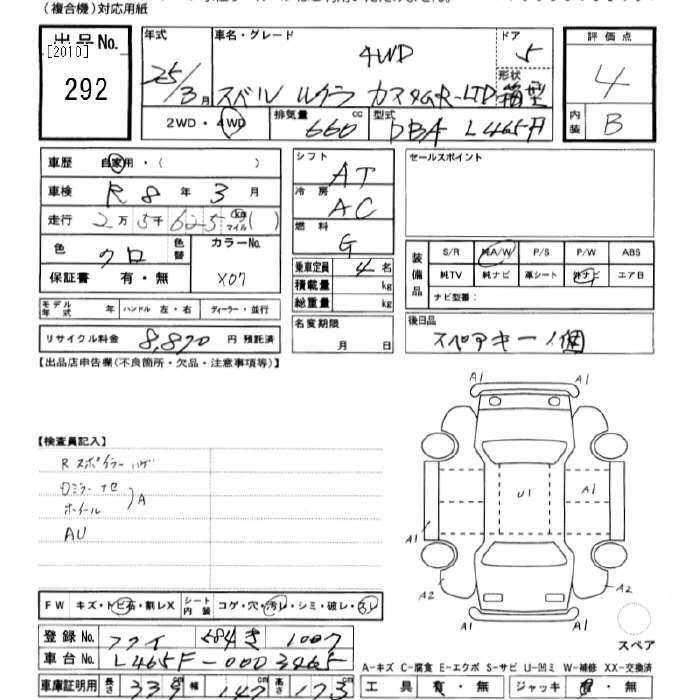 (複合機)対応用紙
出品No.
[2010]
292
年式
25/3月
車名・グレード
4WD
スバル ルクラ カスタムR-LTD
ドア
5
形状
箱型
2WD・4WD
排気量
660 cc
型式
DBA L465F
評価点
4
内装
B
車歴 自家用・( )
車検 R 8 年 3 月
走行 2万5千625 km マイル ( )
色 クロ 色替
カラーNo.
X07
保証書 有・無
モデル年式 年 ハンドル 左・右 ディーラー・並行
リサイクル料金 8,870 円 預託済
シフト
AT
冷房
AC
燃料
G
乗車定員 4 名
積載量 kg
総重量 kg
名変期限
月 日
セールスポイント
装備品
S/R 純A/W P/S P/W ABS
純TV 純ナビ 革シート 社ナビ エア日
ナビ型番:
後日品
スペアキー1個
【出品店申告欄(不良箇所・欠品・注意事項等)】
【検査員記入】
Rスポイラーハゲ
ロミラーナセ
ホイール
A
AU
A1 A1
A1 U1 A1
A1 A1
A2 A2
スペア
FW キズ・トビ石・割レX シート内装 コゲ・穴・汚レ・シミ・破レ・スレ
登録No. 584 き 1007
車台No. L465F-0003465
車庫証明用 長さ 339 cm 幅 147 cm 高さ 173 cm
A-キズ C-腐食 E-エクボ S-サビ U-凹ミ W-補修 XX-交換済
工具 有・無 ジャッキ 有・無